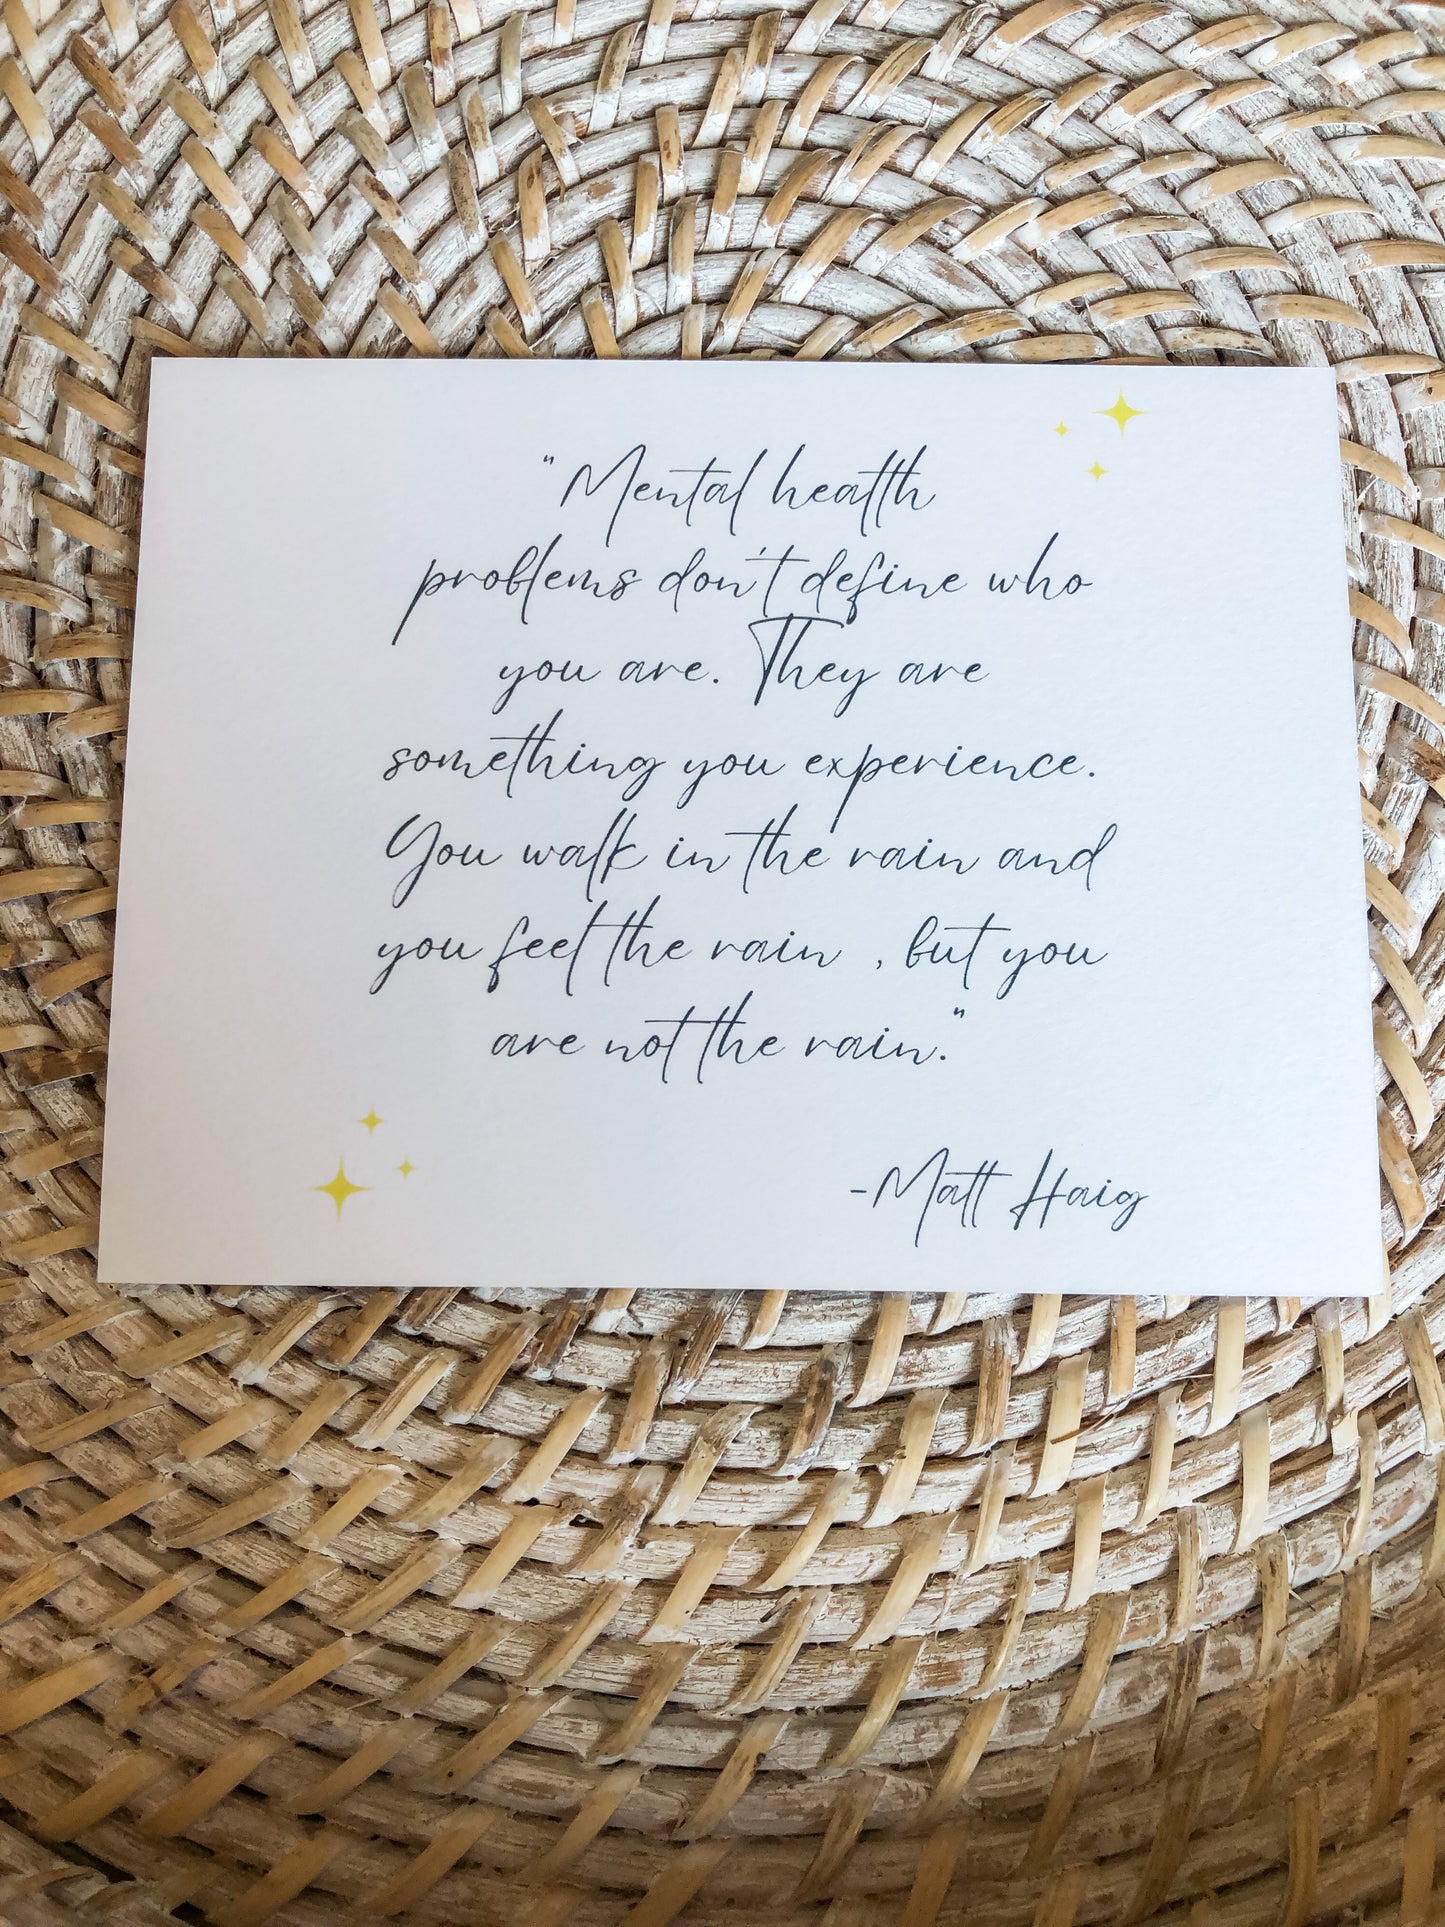 "Mental health
problems don't define who
you are. They are
something you experience.
You walk in the rain and
you feel the rain , but you
are not the rain."
-Matt Haig